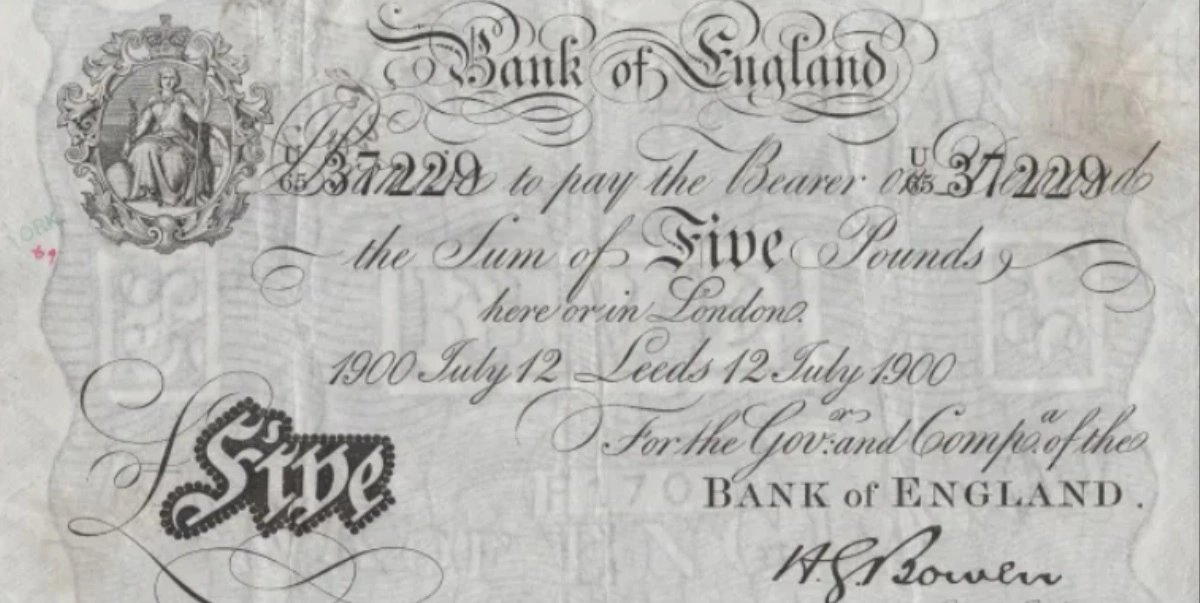 Bank of England
U
65 37229 to pay the Bearer on Demand U
65 37229
the Sum of Five Pounds,
here or in London.
1900 July 12 Leeds 12 July 1900
For the Gov.r and Comp.a of the
BANK of ENGLAND.
£Five
H.G. Bowen
YORK